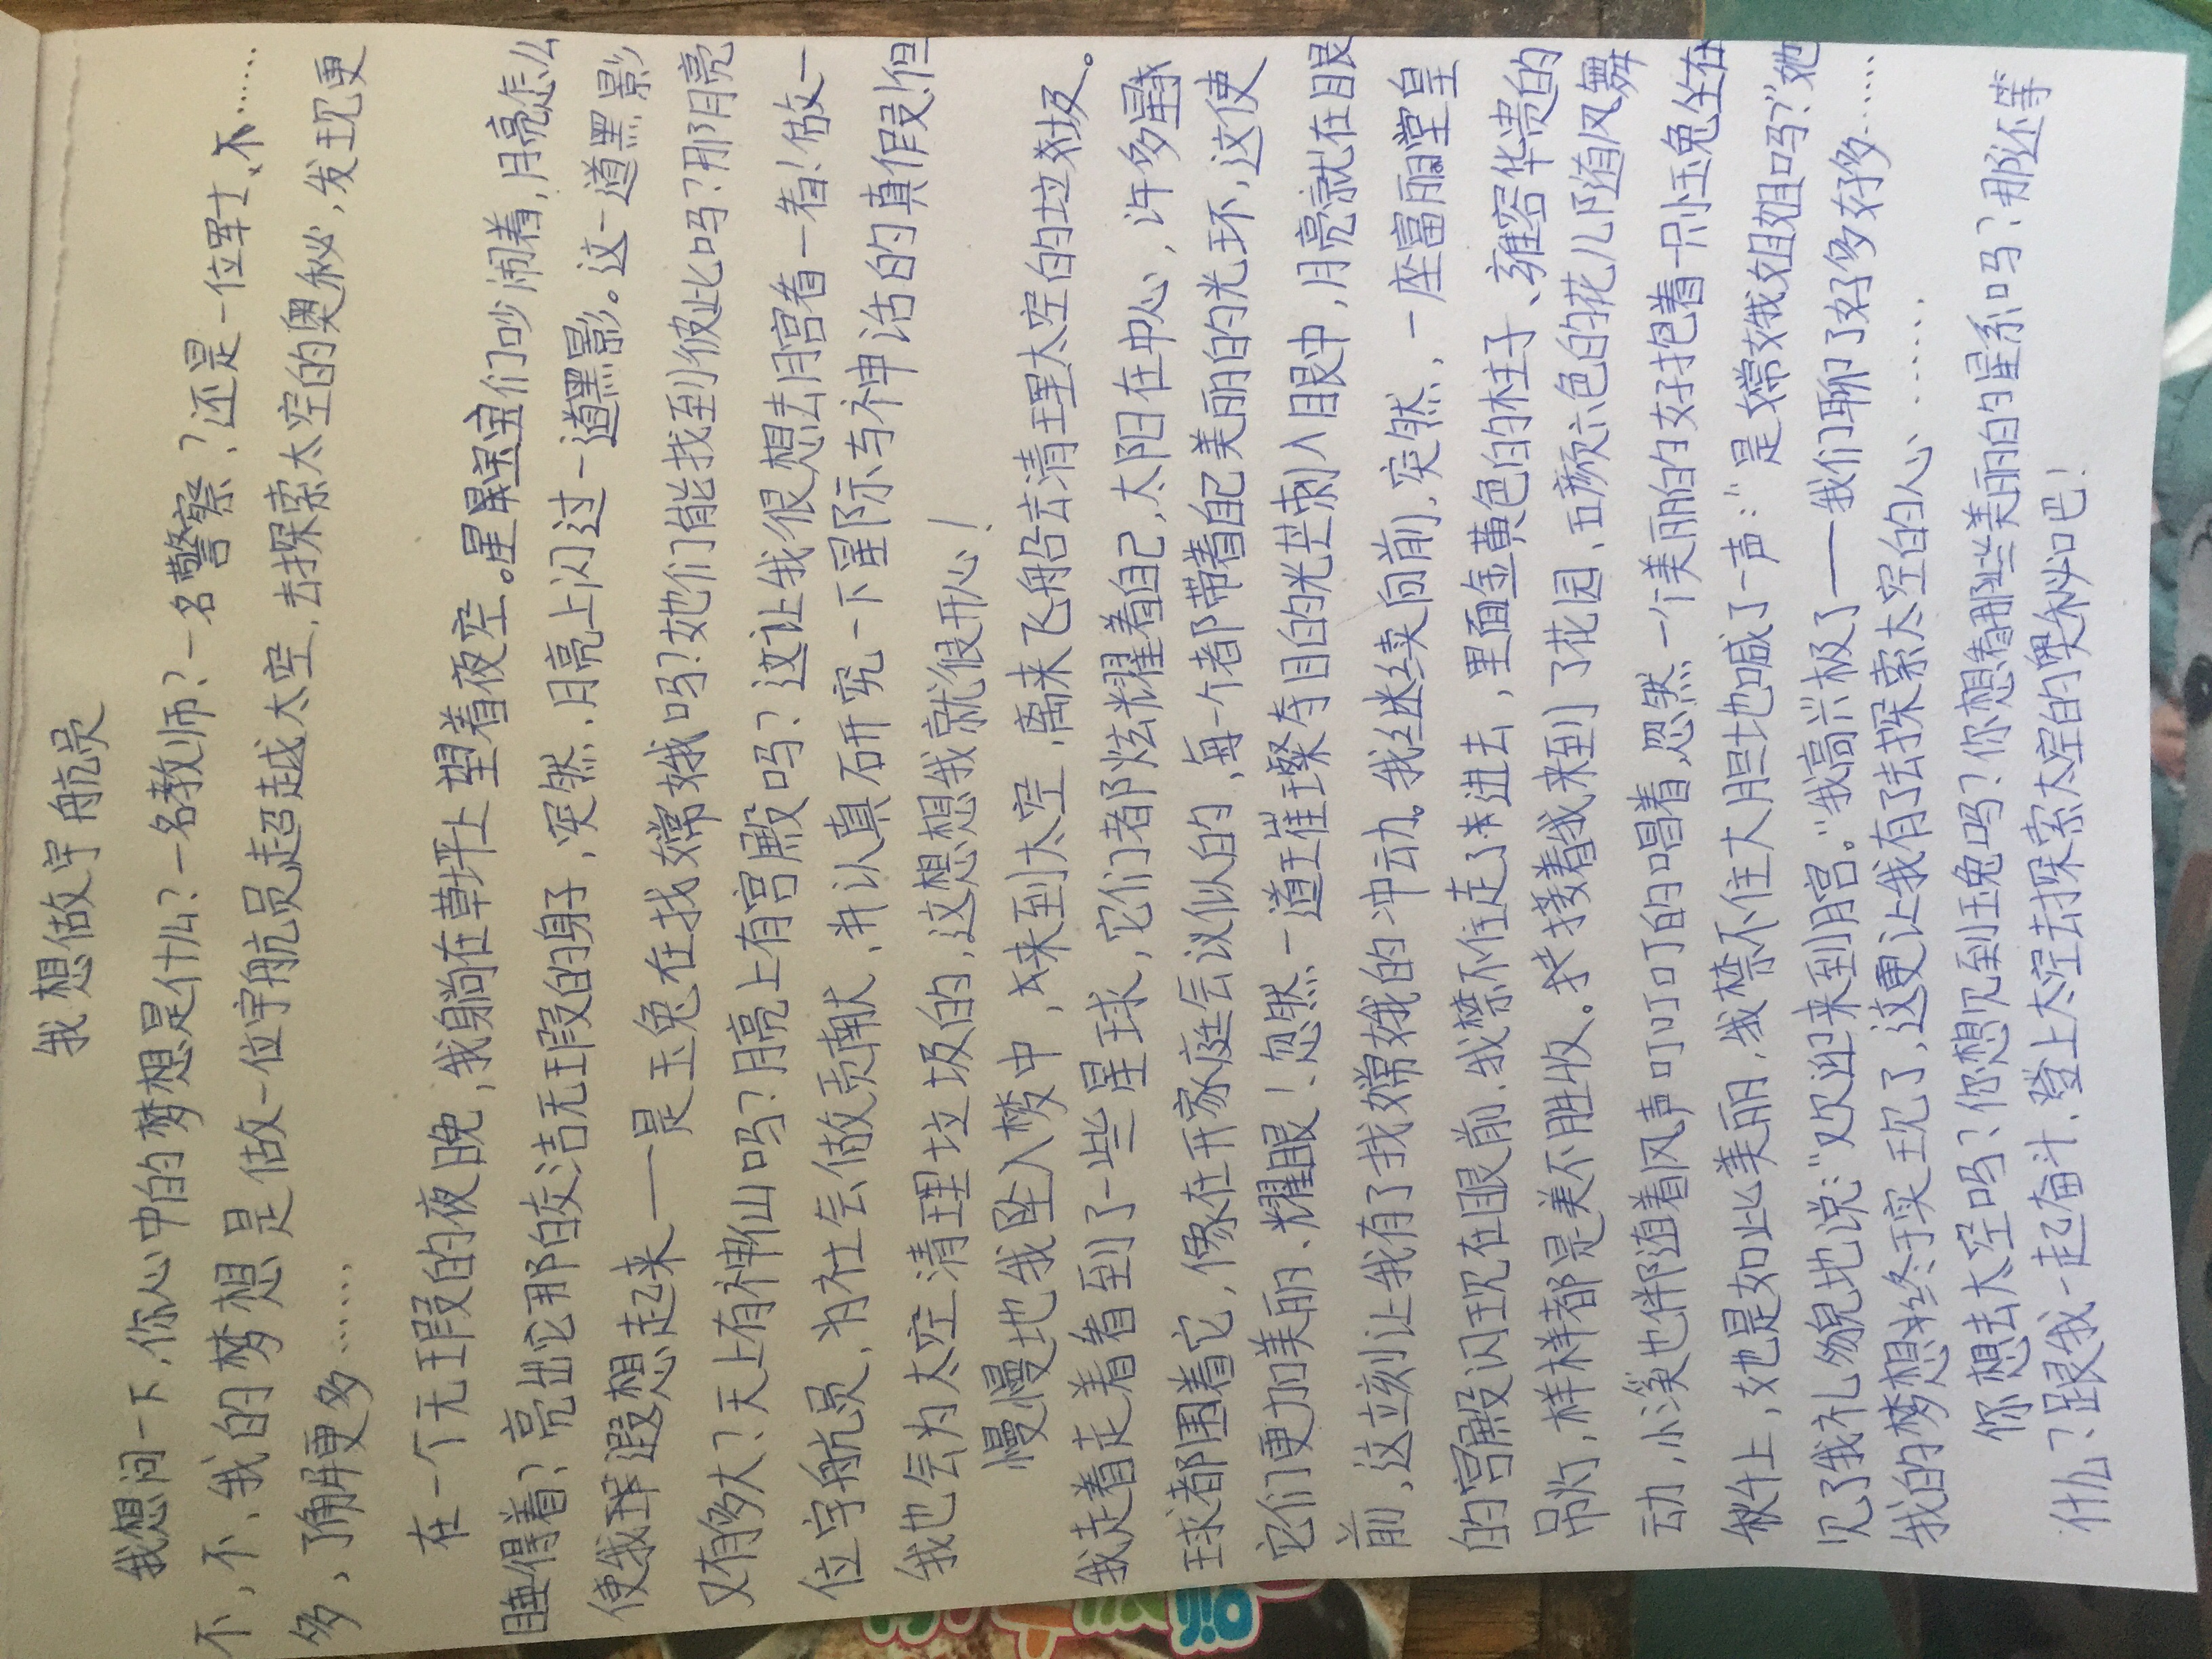 我想做宇航员
我想问一下,你心中的梦想是什么?一名教师?一名警察?还是一位军士、不……
不,不、我的梦想是做一位宇航员超越太空,去探索太空的奥秘,发现更
多、了解更多……
在一个无瑕的夜晚,我躺在草坪上望着夜空。星星宝宝们吵闹着,月亮怎么
睡得着?亮出它那的皎洁无瑕的身子,突然,月亮上闪过一道黑影。这一道黑影
使我遐想起来——是玉兔在找嫦娥吗?她们能找到彼此吗?那月亮
又有多大?天上有神仙山吗?月亮上有宫殿吗?这让我很想去月宫看一看!做一
位宇航员,为社会做贡献,并认真研究一下星际与神话的真假!但
我也会为太空清理垃圾的,这想想我就很开心!
慢慢地我坠入梦中,来到太空,离来飞船去清理太空的垃圾。
我走着走着看到了一些星球,它们都炫耀着自己,太阳在中心,许多星
球都围着它,像在开家庭会议似的,每一个都带着自己美丽的光环,这使
它们更加美丽、耀眼!忽然一道璀璨夺目的光芒刺入眼中,月亮就在眼
前,这立刻让我有了找嫦娥的冲动。我继续向前,突然,一座富丽堂皇
的宫殿闪现在眼前,我禁不住走了进去,里面金黄色的柱子、雍容华贵的
吊灯,样样都是美不胜收。接着我来到了花园,五颜六色的花儿随风舞
动,小溪也伴随着风声叮叮叮的唱着,忽然一个美丽的女子抱着一只玉兔坐在
秋千上,她是如此美丽,我禁不住大胆地喊了一声:“是嫦娥姐姐吗?”她
见了我礼貌地说:“欢迎来到月宫。”我高兴极了——我们聊了好多好多……
我的梦想终于实现了,这更让我有了去探索太空的心……
你想去太空吗?你想见到玉兔吗?你想看那些美丽的星系吗?那还等
什么?跟我一起奋斗、登上太空去探索太空的奥秘吧!